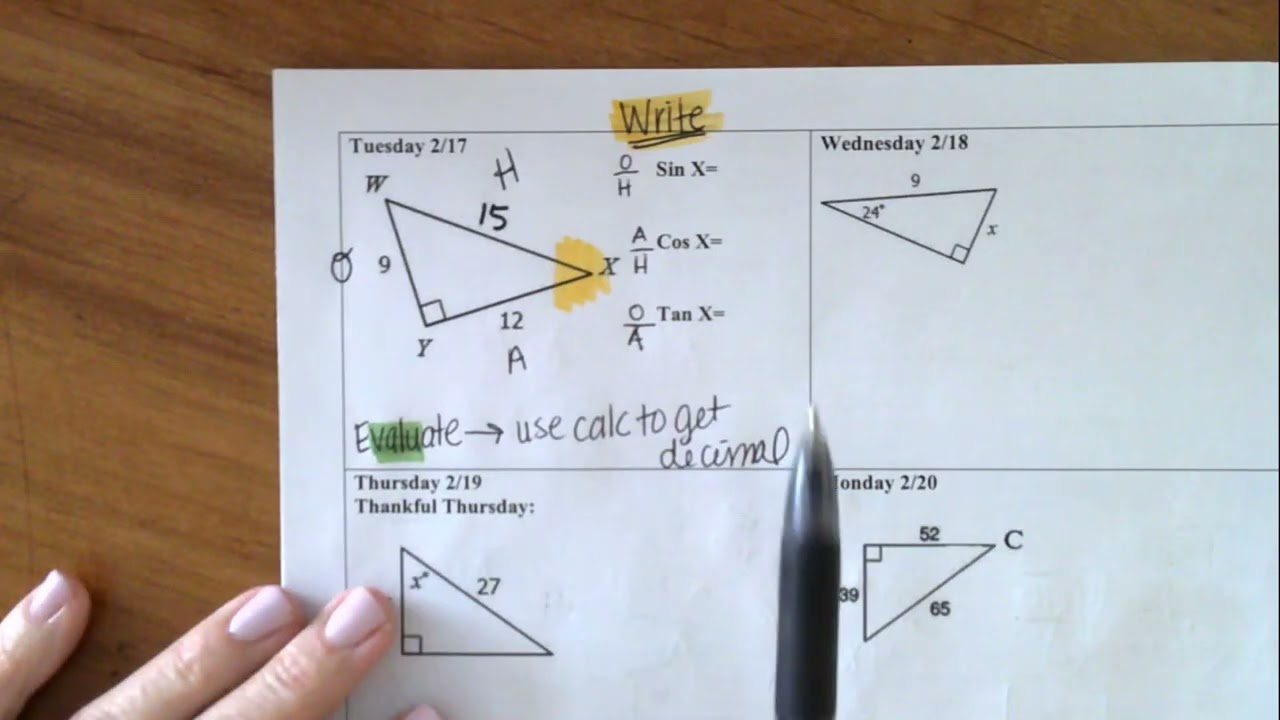 Write
Tuesday 2/17
W
H
15
O
9
X
12
Y
A
O
H
Sin X=
A
H
Cos X=
O
A
Tan X=
Evaluate → use calc to get
decimal
Wednesday 2/18
9
24°
x
Thursday 2/19
Thankful Thursday:
x°
27
onday 2/20
52
C
39
65